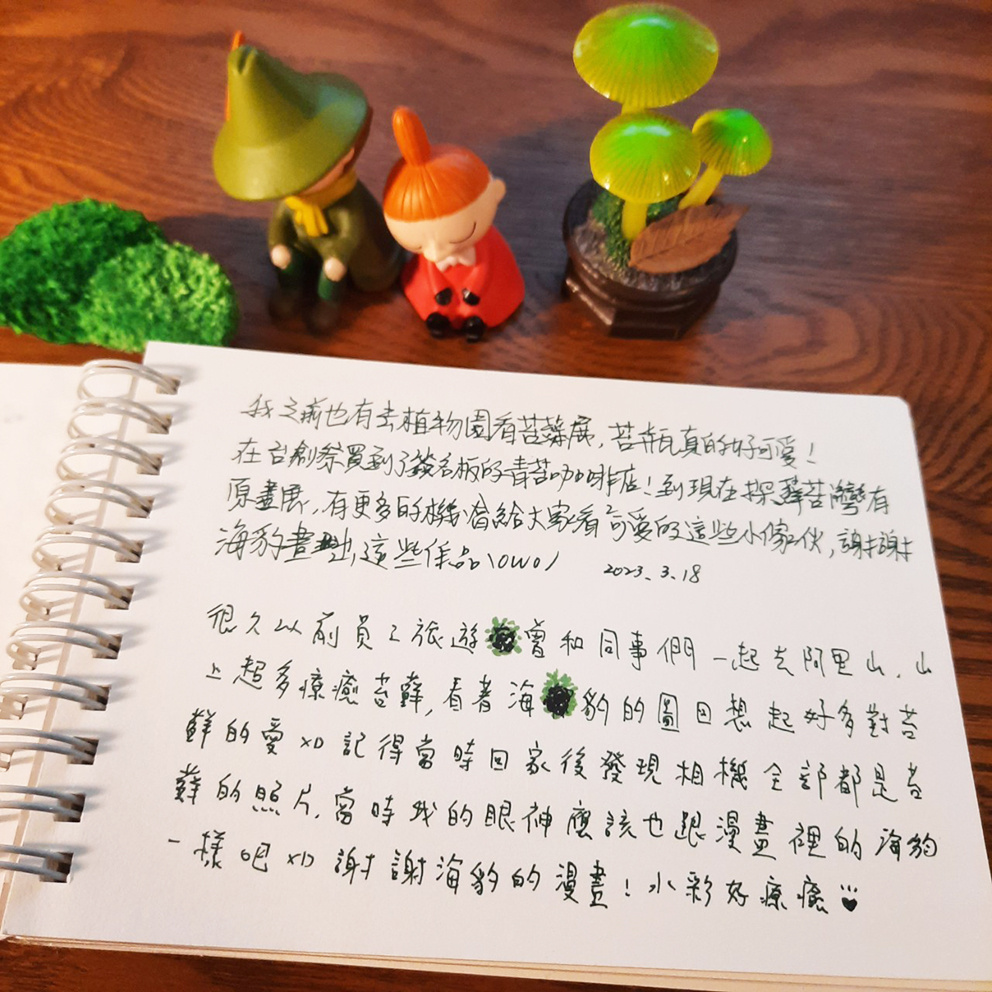 我之前也有去植物園看苔蘚展,苔瓶真的好可愛!
在台創祭買到了簽名板的青苔咖啡店!到現在探 苔灣有
原畫展,有更多的機會給大家看可愛的這些小傢伙,謝謝
海豹畫出這些作品\owo/ 2023.3.18
很久以前員工旅遊 曾和同事們一起去阿里山,山
上超多療癒苔蘚,看著海 豹的圖回想起好多對苔
蘚的愛 XD 記得當時回家後發現相機全部都是苔
蘚的照片,當時我的眼神應該也跟漫畫裡的海豹
一樣吧 XD 謝謝海豹的漫畫!水彩好療癒